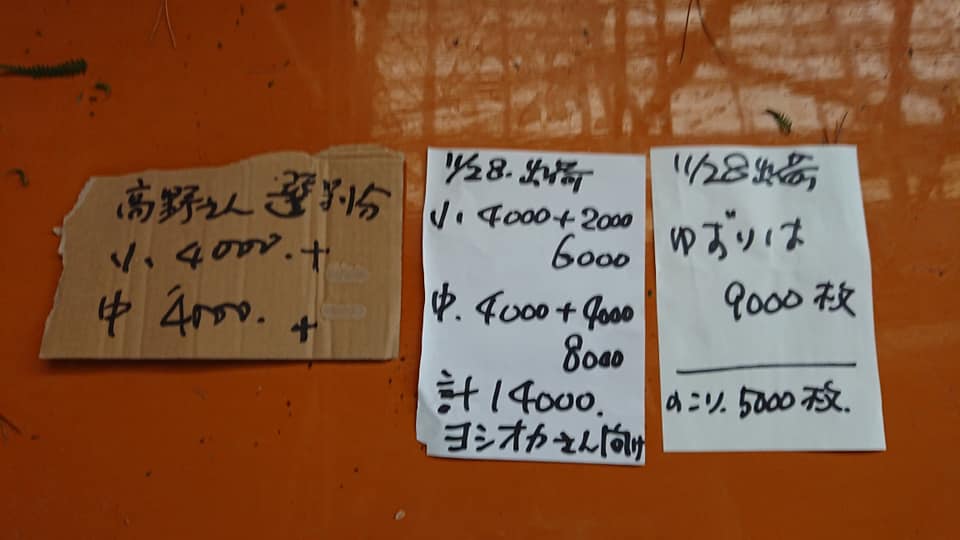 高野さん 選別分
小、4000.+
中 4000. +
11/28.出荷
小、4000+2000
6000
中.4000+4000
8000
計14000.
ヨシオカさん向け
11/28出荷
ゆずりは
9000枚
のこり.5000枚.